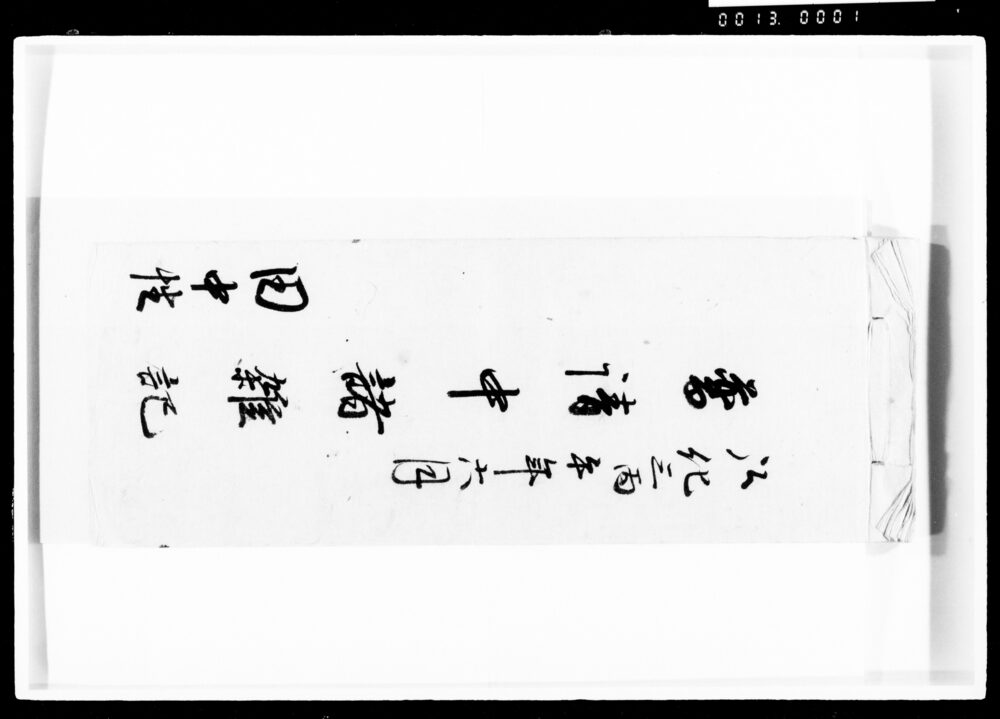 0013. 0001
弘化三丙午年六月
普請中諸雜記
田中